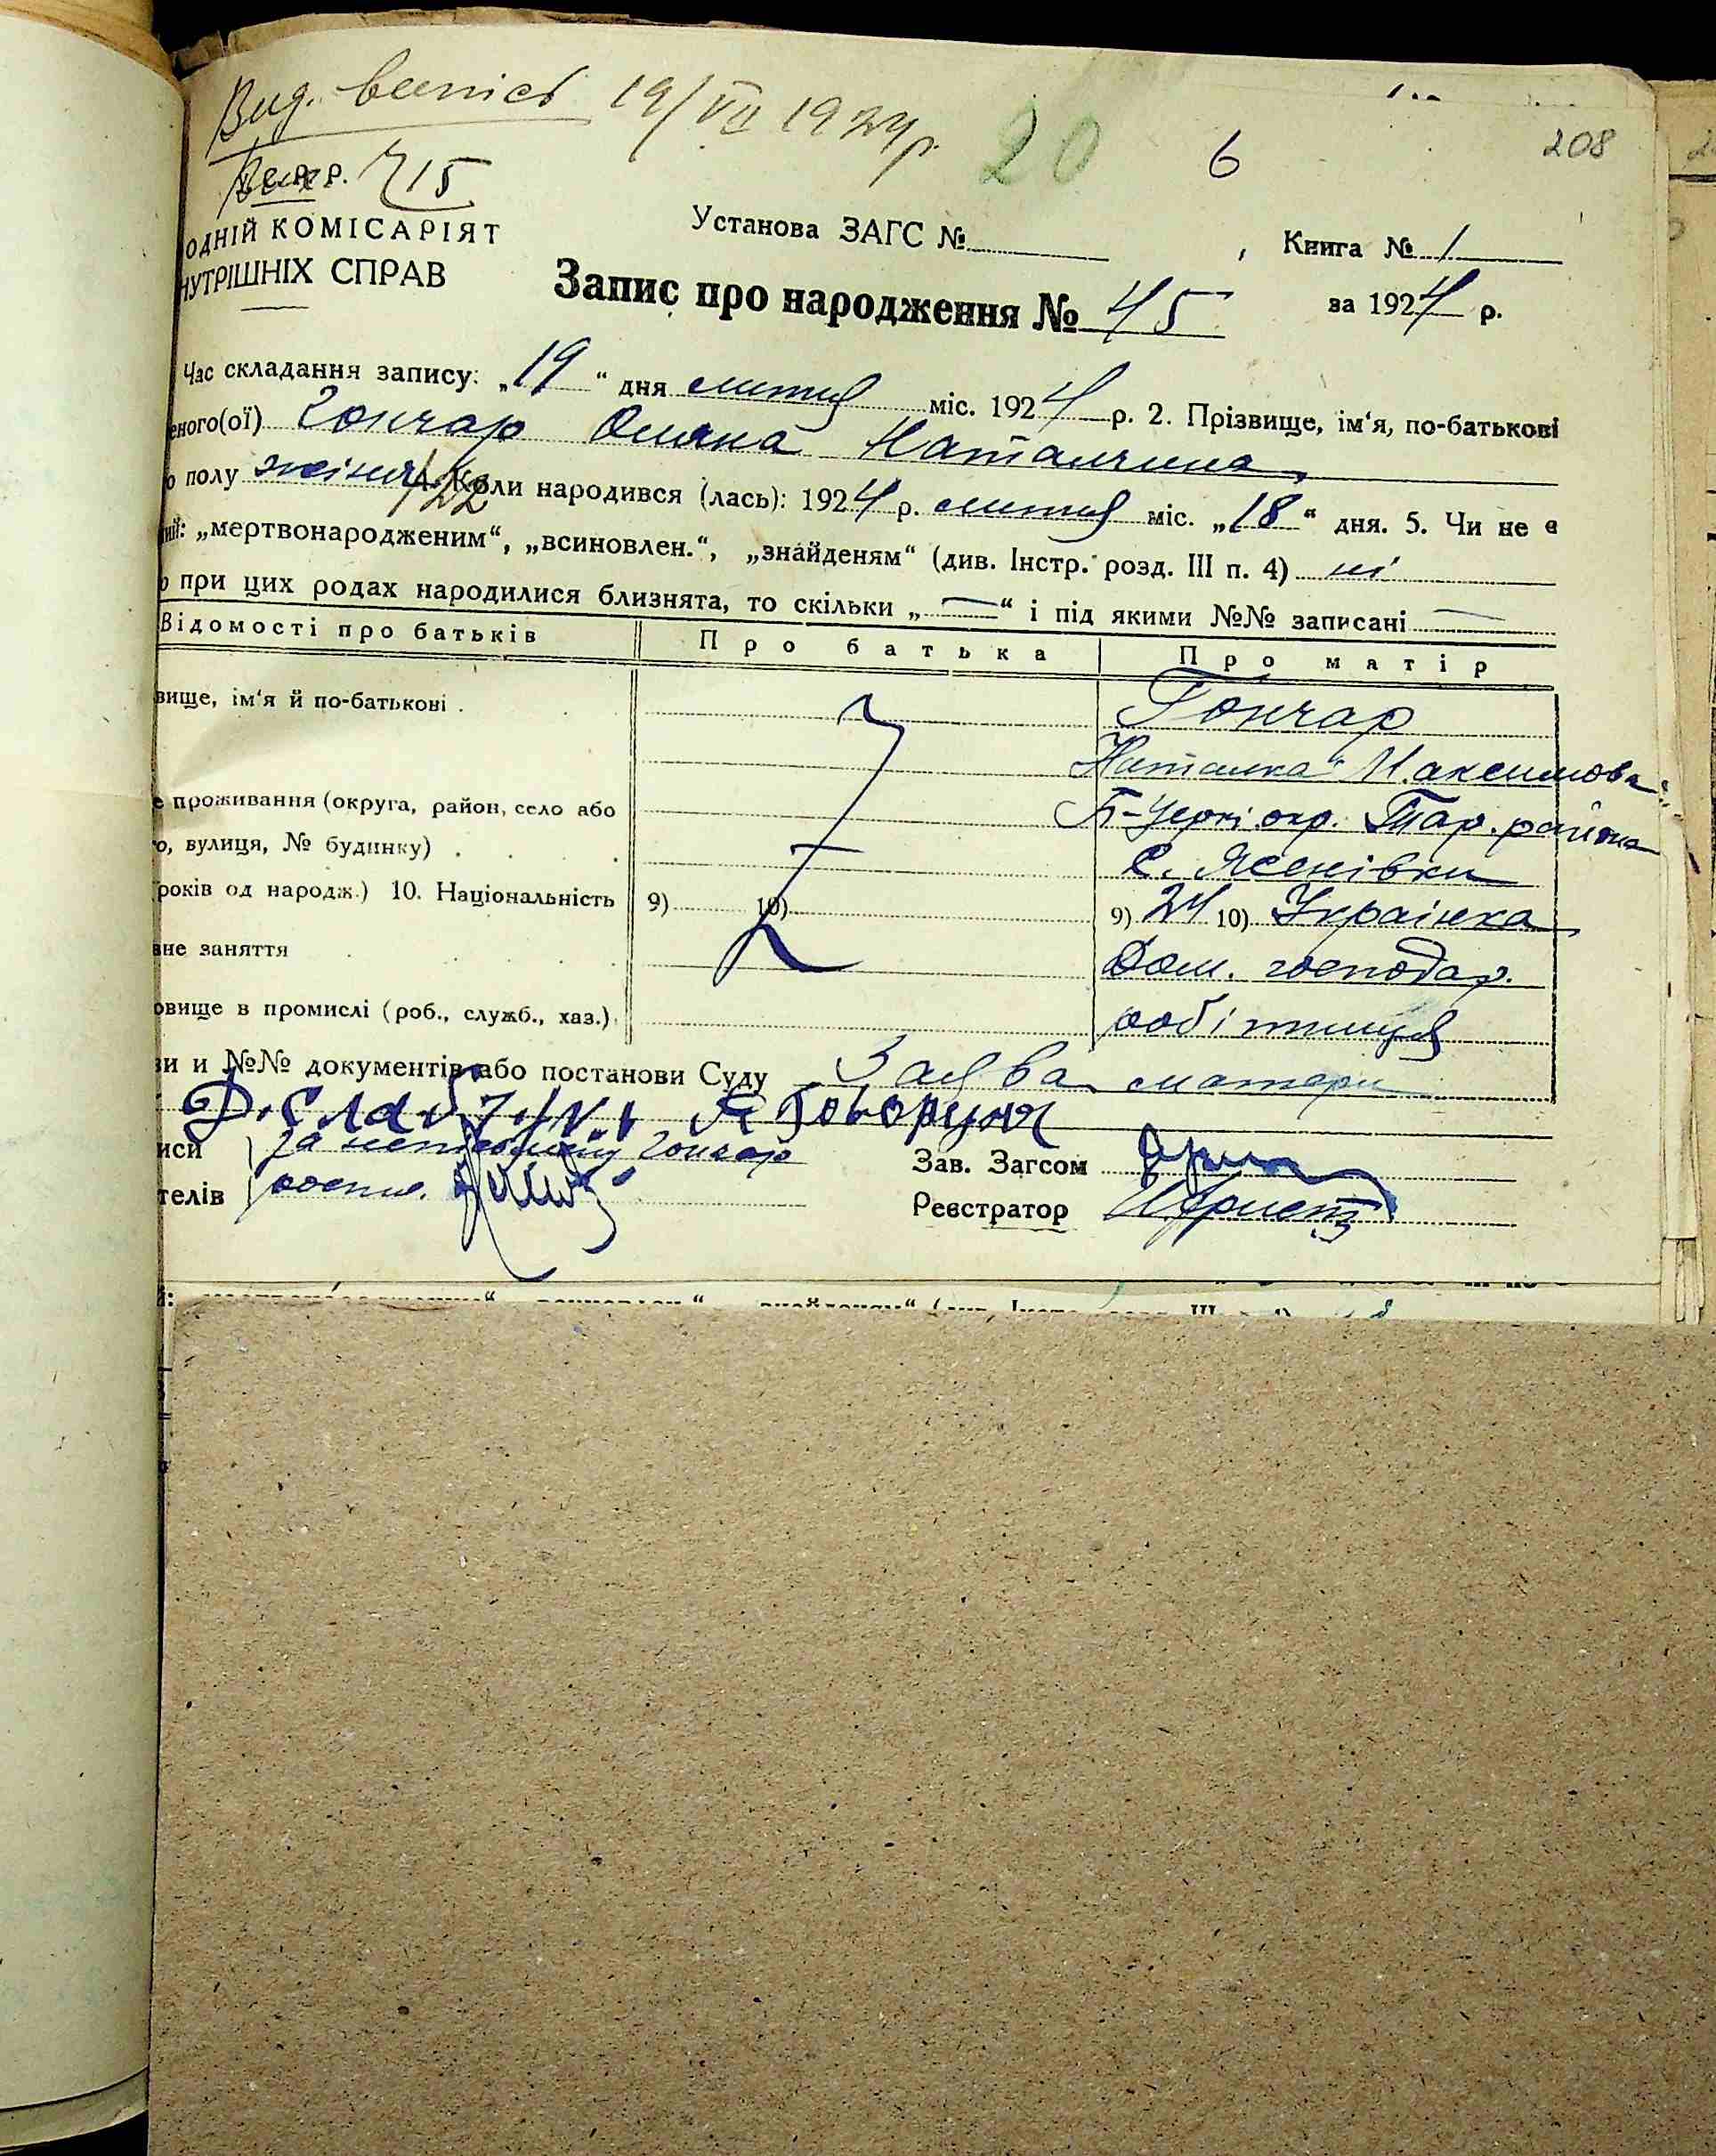 Вид. витпісь 19/VII 1924 р.
715
20 6 208
ОДНІЙ КОМІСАРІЯТ
НУТРІШНІХ СПРАВ
Установа ЗАГС № , Книга № 1
Запис про народження № 45 за 1924 р.
Час складання запису: „19“ дня лютня міс. 1924 р. 2. Прізвище, ім'я, по-батькові
еного(ої) Гончар Оляна Наталчина
о полу жіноч. 4. Коли народився (лась): 1924 р. лютня міс. „18“ дня. 5. Чи не є
ий: „мертвонародженим“, „всиновлен.“, „знайденям“ (див. Інстр. розд. III п. 4) ні
о при цих родах народилися близнята, то скільки „—“ і під якими №№ записані —
Відомості про батьків Про батька Про матір
вище, ім'я й по-батькові . Гончар
Наталка Максимова
е проживання (округа, район, село або Б-Церкі. окр. Тар. района
о, вулиця, № будинку) . с. Ясенівки
років од народж.) 10. Національність 9) 10) 9) 24 10) Українка
вне заняття Дом. господар.
овище в промислі (роб., служб., хаз.) робітниця
зи и №№ документів або постанови Суду Заява матери
иси за неписьмену Гончар Зав. Загсом
телів роспис. Реєстратор